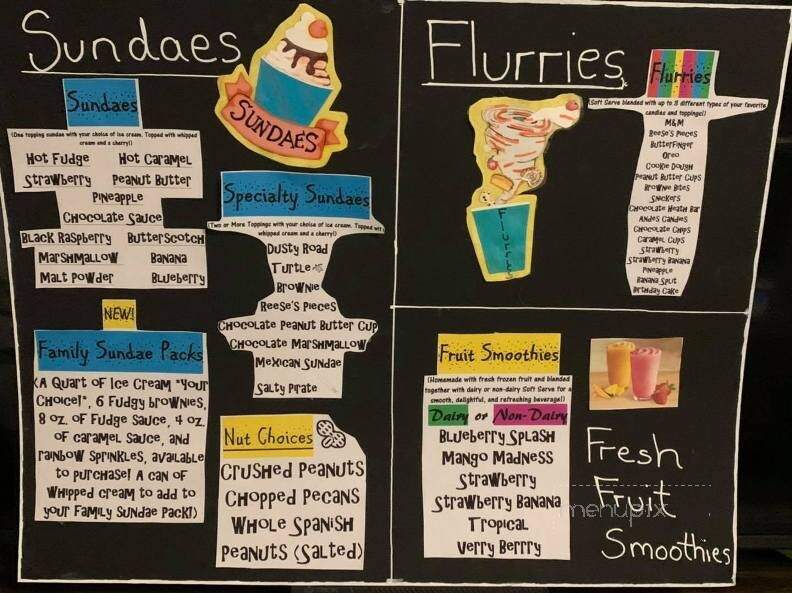 Sundaes
SUNDAES
Sundaes
(One topping sundae with your choice of ice cream. Topped with whipped
cream and a cherry!)
Hot Fudge Hot Caramel
Strawberry Peanut Butter
Pineapple
Chocolate Sauce
Black Raspberry Butterscotch
Marshmallow Banana
Malt Powder Blueberry
Specialty Sundaes
(Two or More Toppings with your choice of ice cream. Topped with
whipped cream and a cherry!)
Dusty Road
Turtle
Brownie
Reese's Pieces
Chocolate Peanut Butter Cup
Chocolate Marshmallow
Mexican Sundae
Salty Pirate
NEW!
Family Sundae Packs
(A Quart of Ice Cream "Your
Choice!", 6 Fudgy brownies,
8 oz. of Fudge Sauce, 4 oz.
of caramel sauce, and
rainbow sprinkles, available
to purchase! A can of
whipped cream to add to
your Family Sundae Pack!)
Nut Choices
Crushed Peanuts
Chopped Pecans
Whole Spanish
Peanuts (Salted)
Flurries
Flurries
Flurries
(Soft Serve blended with up to 3 different types of your favorite
candies and toppings!)
M&M
Reese's Pieces
Butterfinger
Oreo
Cookie Dough
Peanut Butter Cups
Brownie Bites
Snickers
Chocolate Heath Bar
Andes Candies
Chocolate Chips
Caramel Cups
Strawberry
Strawberry Banana
Pineapple
Banana Split
Birthday Cake
Fruit Smoothies
(Homemade with fresh frozen fruit and blended
together with dairy or non-dairy Soft Serve for a
smooth, delightful, and refreshing beverage!)
Dairy or Non-Dairy
Blueberry Splash
Mango Madness
Strawberry
Strawberry Banana
Tropical
Verry Berrry
Fresh
Fruit
Smoothies
menupix